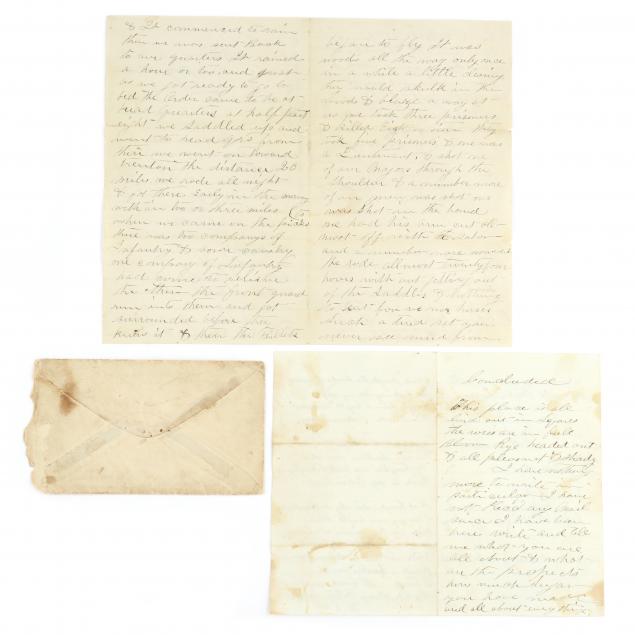 & It commenced to rain
then we was sent Back
to our quarters It rained
a hour or too and just
as we got ready to go to
bed the order came to be at
head quarters at half past
eight we Saddled up and
went to head qrs from
thire we went on toward
trenton the distance 20
miles we rode all night
& got there Early in the morning
with in too or three miles
when we came on the pickets
there was too companys of
Infantry & some cavalry
one company of Infantry
had come to relieve
the other the front guard
run into them and got
surrounded before they
knew it & then the Bullets
began to fly It was
woods all the way only once
in a while a little
they would skulk in the
woods & away at
us we took three prisoners
& killed they
took five prisoners & one was
a Lieutenant, & shot one
of our Majors through the
Shoulder & a number more
of our men was shot one
was Shot in the hand
one had his arm cut all
most off
and a number more wounded
We rode all most twenty four
hours with out getting out
of the Saddle & nothing
to eat for us nor horses
a tired set you
never see
Concluded
This place is all
laid out in squares
the roses are in full
bloom Rye headed out
& all pleasant & shady
I have nothing
more to write in
particular I have
not had any mail
since I have been
here write and tell
me what you are
all about & what
are the prospects
how much sugar
you have made
and all about every thing